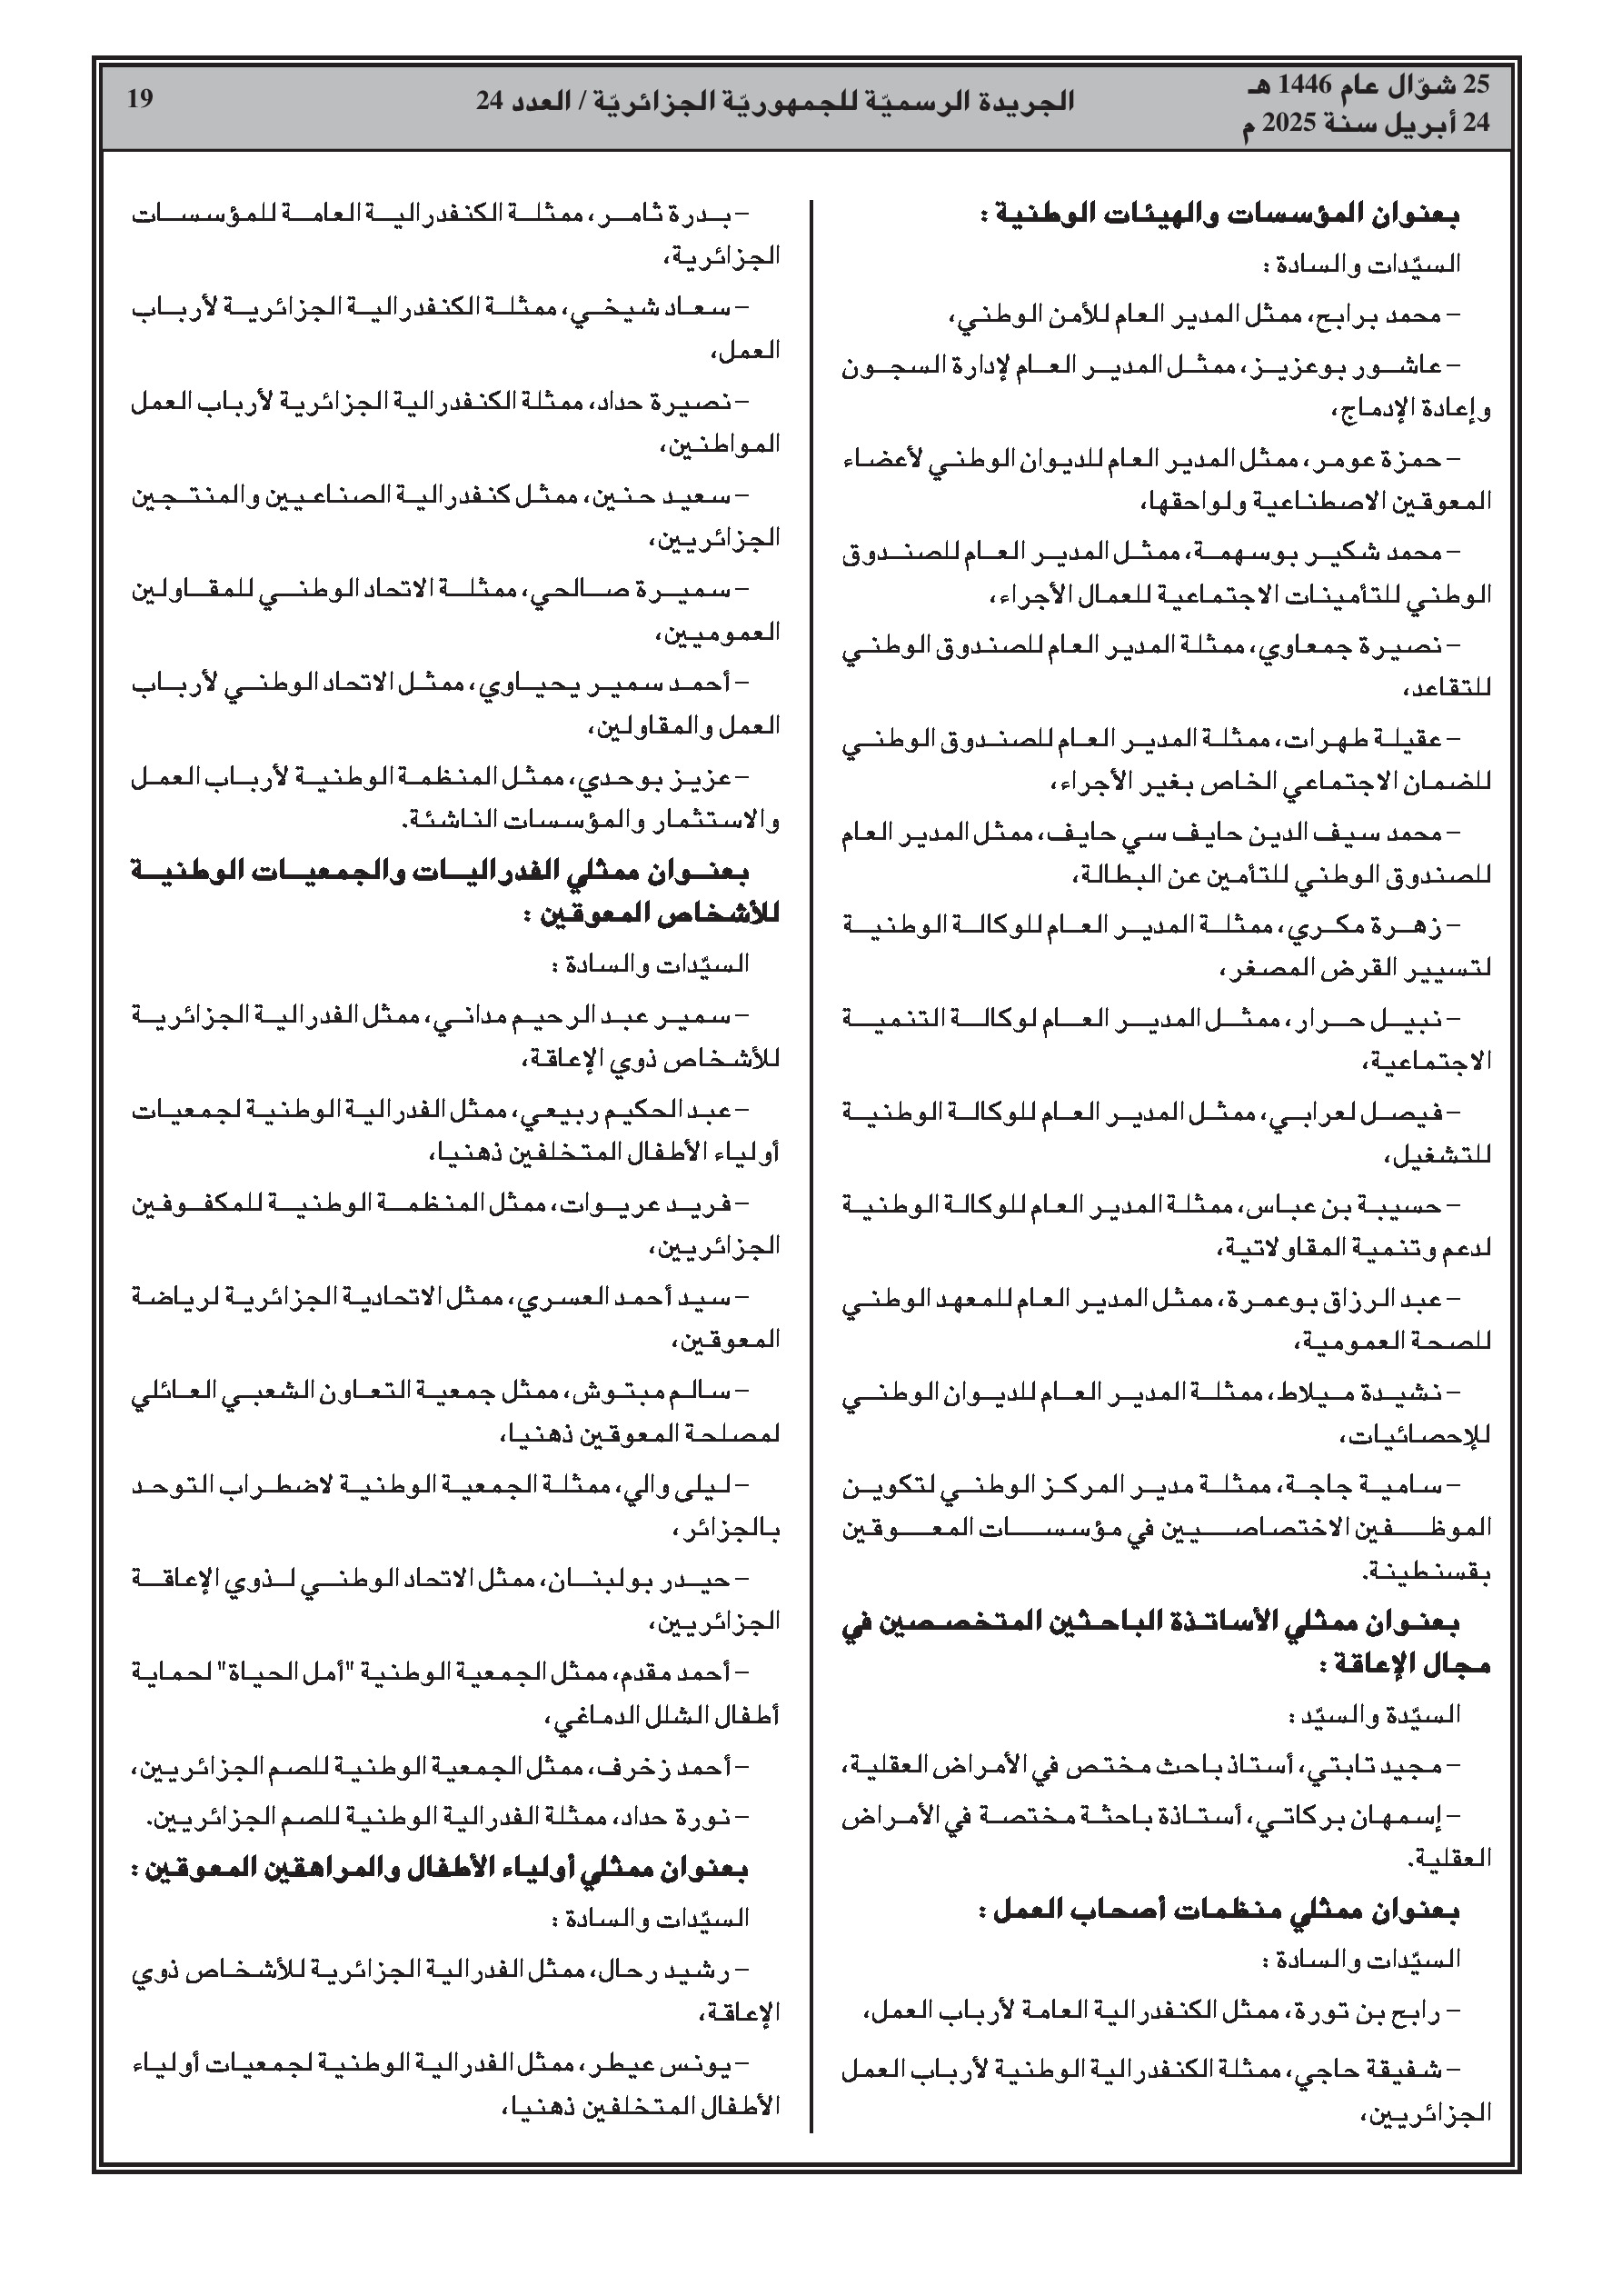 25 شوّال عام 1446 هـ
24 أبريل سنة 2025 م
الجريدة الرسميّة للجمهوريّة الجزائريّة / العدد 24
19
بعنوان المؤسسات والهيئات الوطنية :
السيّدات والسادة :
– محمد برابح، ممثل المدير العام للأمن الوطني،
– عاشور بوعزيز، ممثل المدير العام لإدارة السجون
وإعادة الإدماج،
– حمزة عومر، ممثل المدير العام للديوان الوطني لأعضاء
المعوقين الاصطناعية ولواحقها،
– محمد شكير بوسهمة، ممثل المدير العام للصندوق
الوطني للتأمينات الاجتماعية للعمال الأجراء،
– نصيرة جمعاوي، ممثلة المدير العام للصندوق الوطني
للتقاعد،
– عقيلة طهرات، ممثلة المدير العام للصندوق الوطني
للضمان الاجتماعي الخاص بغير الأجراء،
– محمد سيف الدين حايف سي حايف، ممثل المدير العام
للصندوق الوطني للتأمين عن البطالة،
– زهرة مكري، ممثلة المدير العام للوكالة الوطنية
لتسيير القرض المصغر،
– نبيل حرار، ممثل المدير العام لوكالة التنمية
الاجتماعية،
– فيصل لعرابي، ممثل المدير العام للوكالة الوطنية
للتشغيل،
– حسيبة بن عباس، ممثلة المدير العام للوكالة الوطنية
لدعم وتنمية المقاولاتية،
– عبد الرزاق بوعمرة، ممثل المدير العام للمعهد الوطني
للصحة العمومية،
– نشيدة ميلاط، ممثلة المدير العام للديوان الوطني
للإحصائيات،
– سامية جاجة، ممثلة مدير المركز الوطني لتكوين
الموظفين الاختصاصيين في مؤسسات المعوقين
بقسنطينة.
بعنوان ممثلي الأساتذة الباحثين المتخصصين في
مجال الإعاقة :
السيّدة والسيّد :
– مجيد تابتي، أستاذ باحث مختص في الأمراض العقلية،
– إسمهان بركاتي، أستاذة باحثة مختصة في الأمراض
العقلية.
بعنوان ممثلي منظمات أصحاب العمل :
السيّدات والسادة :
– رابح بن تورة، ممثل الكنفدرالية العامة لأرباب العمل،
– شفيقة حاجي، ممثلة الكنفدرالية الوطنية لأرباب العمل
الجزائريين،
– بدرة ثامر، ممثلة الكنفدرالية العامة للمؤسسات
الجزائرية،
– سعاد شيخي، ممثلة الكنفدرالية الجزائرية لأرباب
العمل،
– نصيرة حداد، ممثلة الكنفدرالية الجزائرية لأرباب العمل
المواطنين،
– سعيد حنين، ممثل كنفدرالية الصناعيين والمنتجين
الجزائريين،
– سميرة صالحي، ممثلة الاتحاد الوطني للمقاولين
العموميين،
– أحمد سمير يحياوي، ممثل الاتحاد الوطني لأرباب
العمل والمقاولين،
– عزيز بوحدي، ممثل المنظمة الوطنية لأرباب العمل
والاستثمار والمؤسسات الناشئة.
بعنوان ممثلي الفدراليات والجمعيات الوطنية
للأشخاص المعوقين :
السيّدات والسادة :
– سمير عبد الرحيم مداني، ممثل الفدرالية الجزائرية
للأشخاص ذوي الإعاقة،
– عبد الحكيم ربيعي، ممثل الفدرالية الوطنية لجمعيات
أولياء الأطفال المتخلفين ذهنيا،
– فريد عريوات، ممثل المنظمة الوطنية للمكفوفين
الجزائريين،
– سيد أحمد العسري، ممثل الاتحادية الجزائرية لرياضة
المعوقين،
– سالم مبتوش، ممثل جمعية التعاون الشعبي العائلي
لمصلحة المعوقين ذهنيا،
– ليلى والي، ممثلة الجمعية الوطنية لاضطراب التوحد
بالجزائر،
– حيدر بولبنان، ممثل الاتحاد الوطني لذوي الإعاقة
الجزائريين،
– أحمد مقدم، ممثل الجمعية الوطنية "أمل الحياة" لحماية
أطفال الشلل الدماغي،
– أحمد زخرف، ممثل الجمعية الوطنية للصم الجزائريين،
– نورة حداد، ممثلة الفدرالية الوطنية للصم الجزائريين.
بعنوان ممثلي أولياء الأطفال والمراهقين المعوقين :
السيّدات والسادة :
– رشيد رحال، ممثل الفدرالية الجزائرية للأشخاص ذوي
الإعاقة،
– يونس عيطر، ممثل الفدرالية الوطنية لجمعيات أولياء
الأطفال المتخلفين ذهنيا،